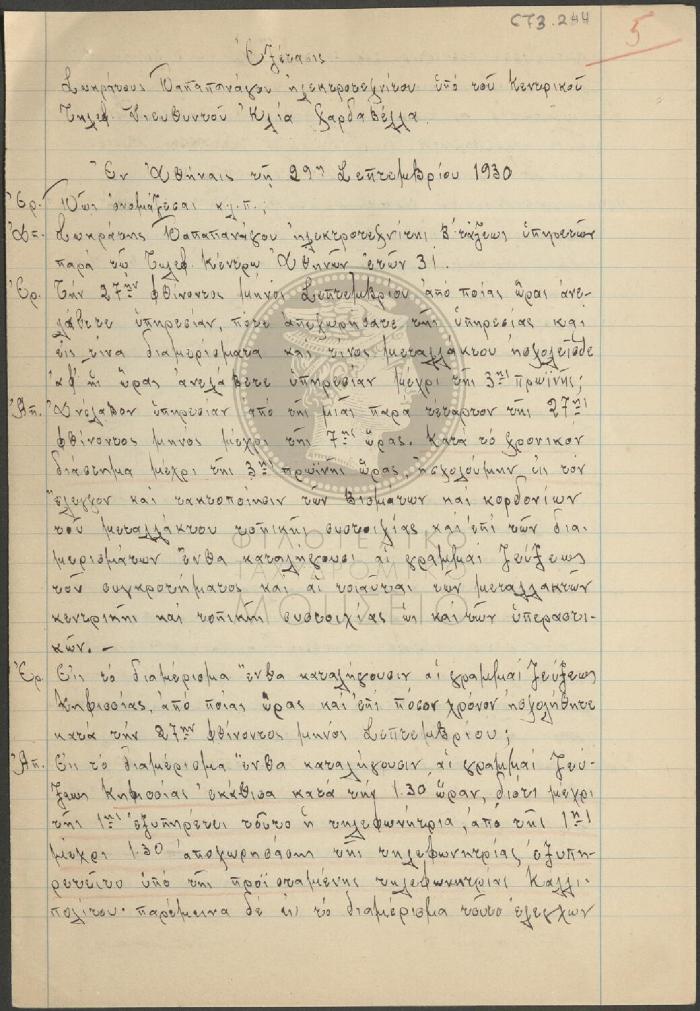 CT3.244
5
Ἐξέτασις
Σωκράτους Παπαπανάγου ἠλεκτροτεχνίτου ὑπό τοῦ Κεντρικοῦ
Τηλεφ. Διευθυντοῦ Ἠλία Σαρδαβέλλα.
Ἐν Ἀθήναις τῇ 29ῃ Σεπτεμβρίου 1930
Ἐρ. Πῶς ὀνομάζεσαι κ.λ.π.;
Ἀπ. Σωκράτης Παπαπανάγου ἠλεκτροτεχνίτης Β' τάξεως ὑπηρετῶν
παρά τῷ Τηλεφ. Κέντρῳ Ἀθηνῶν ἐτῶν 31.
Ἐρ. Τήν 27ην φθίνοντος μηνός Σεπτεμβρίου ἀπό ποίας ὥρας ἀνε-
λάβετε ὑπηρεσίαν, πότε ἀπεχωρήσατε τῆς ὑπηρεσίας καί
εἰς τίνα διαμερίσματα καί τίνος μεταλλάκτου ἠσχολεῖσθε
ἀφ' ἧς ὥρας ἀνελάβετε ὑπηρεσίαν μέχρι τῆς 3ης πρωϊνῆς;
Ἀπ. Ἀνέλαβον ὑπηρεσίαν ἀπό τῆς μιᾶς παρά τέταρτον τῆς 27ης
φθίνοντος μηνός μέχρι τῆς 7ης ὥρας. Κατά τό χρονικόν
διάστημα μέχρι τῆς 3ης πρωϊνῆς ὥρας, ἠσχολούμην εἰς τόν
ἔλεγχον καί τακτοποίησιν τῶν βισμάτων καί κορδονίων
τοῦ μεταλλάκτου τοπικῆς συστοιχίας καί ἐπί τῶν δια-
μερισμάτων ἔνθα καταλήγουσι αἱ γραμμαί ζεύξεως
τοῦ συγκροτήματος καί αἱ τοιαῦται τῶν μεταλλακτῶν
κεντρικῆς καί τοπικῆς συστοιχίας ὡς καί τῶν ὑπεραστι-
κῶν. –
Ἐρ. Εἰς τό διαμέρισμα ἔνθα καταλήγουσιν αἱ γραμμαί ζεύξεως
Κηφισσίας, ἀπό ποίας ὥρας καί ἐπί πόσον χρόνον ἠσχολήθητε
κατά τήν 27ην φθίνοντος μηνός Σεπτεμβρίου;
Ἀπ. Εἰς τό διαμέρισμα ἔνθα καταλήγουσιν αἱ γραμμαί ζεύ-
ξεως Κηφισσίας ἐκάθισα κατά τήν 1.30 ὥραν, διότι μέχρι
τῆς 1ης ἐξυπηρέτει τοῦτο ἡ τηλεφωνήτρια, ἀπό τῆς 1ης
μέχρι 1.30 ἀποχωρησάσης τῆς τηλεφωνητρίας ἐξυπη-
ρετεῖτο ὑπό τῆς προϊσταμένης τηλεφωνητρίας Καλλι-
πολίτου· παρέμεινα δέ εἰς τό διαμέρισμα τοῦτο ἐλέγχων
ΦΙΛΟΤΕΛΙΚΟ
ΤΑΧΥΔΡΟΜΙΚΟ
ΜΟΥΣΕΙΟ